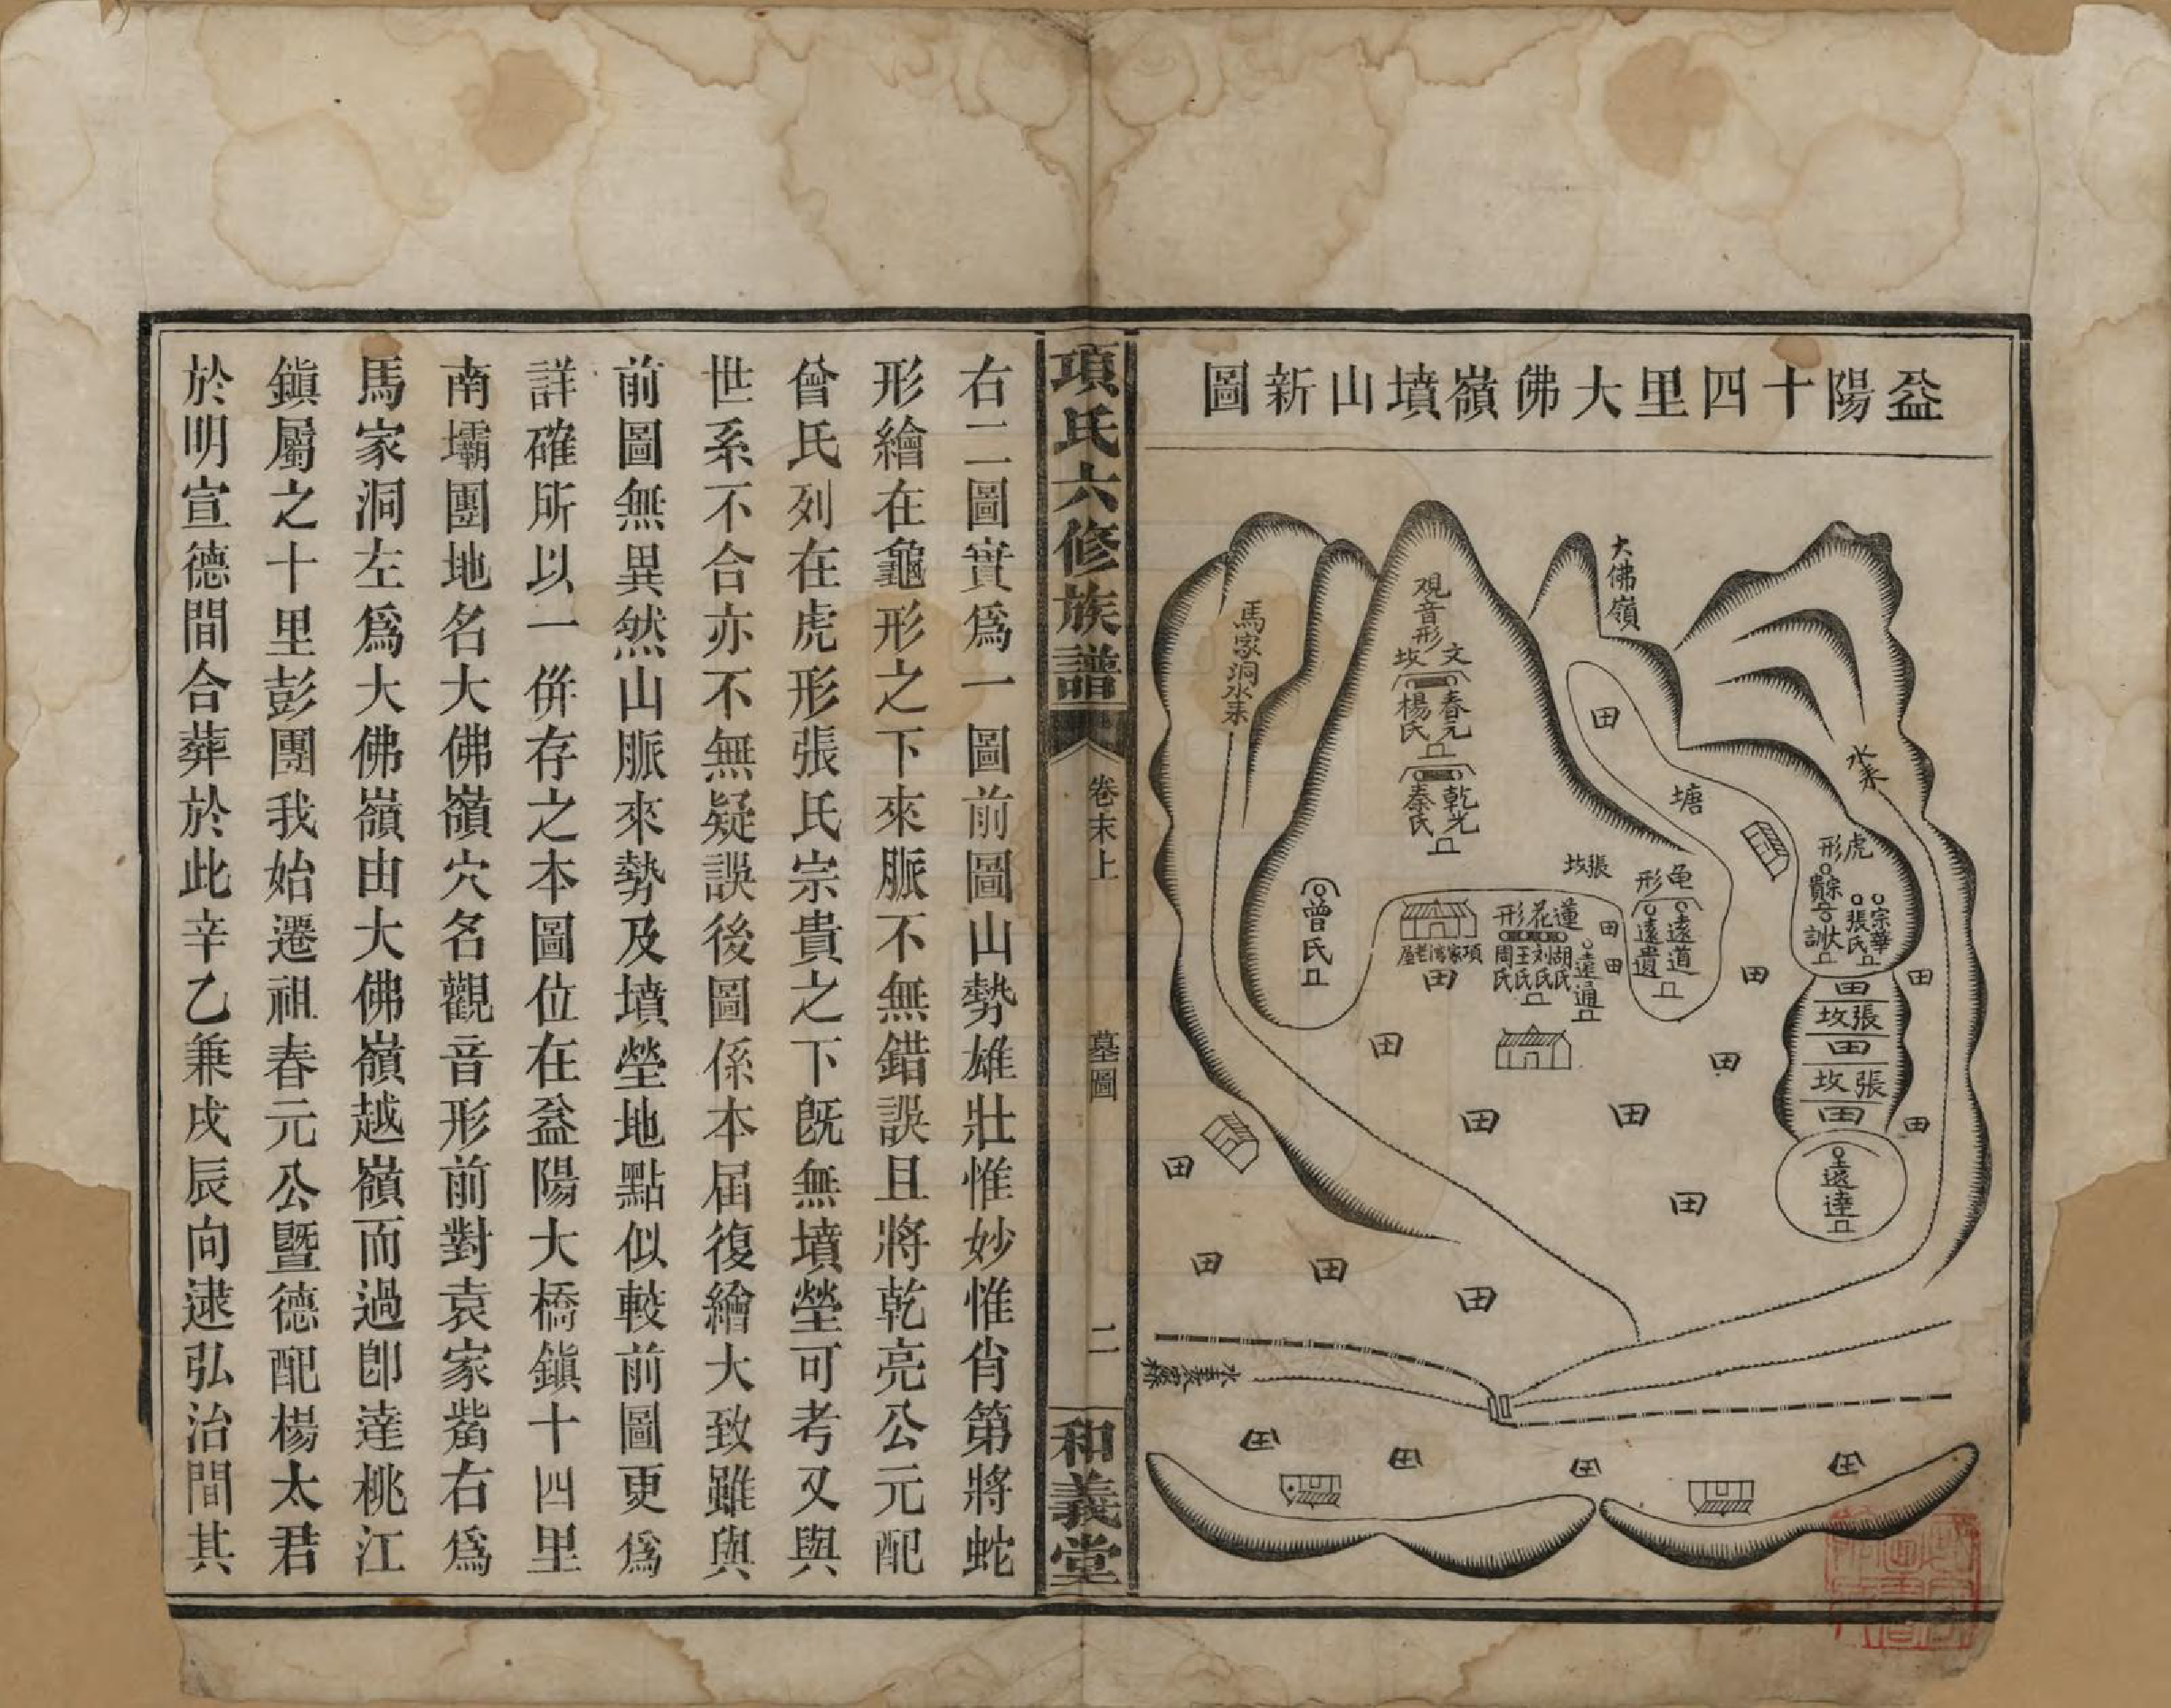 益陽十四里大佛嶺墳山新圖
大佛嶺
觀音形
文坟
春元
楊氏
乾光
秦氏
馬家洞水来
曾氏
水来
塘
田
虎形
宗貴
宗華
張氏
張坟
龟形
遠道
遠遺
蓮花形
胡氏
刘氏
王氏
周氏
遠通
項家湾老屋
田
張坟
田
張坟
田
遠達
田
項氏六修族譜
卷末上
墓圖
二
和義堂
右二圖實爲一圖前圖山勢雄壯惟妙惟肖第將蛇
形繪在龜形之下來脈不無錯誤且將乾亮公元配
曾氏列在虎形張氏宗貴之下旣無墳塋可考又與
世系不合亦不無疑誤後圖係本届復繪大致雖與
前圖無異然山脈來勢及墳塋地點似較前圖更爲
詳確所以一併存之本圖位在益陽大橋鎮十四里
南壩團地名大佛嶺穴名觀音形前對袁家嶲右爲
馬家洞左爲大佛嶺由大佛嶺越嶺而過卽達桃江
鎮屬之十里彭團我始遷祖春元公暨德配楊太君
於明宣德間合葬於此辛乙兼戌辰向逮弘治間其